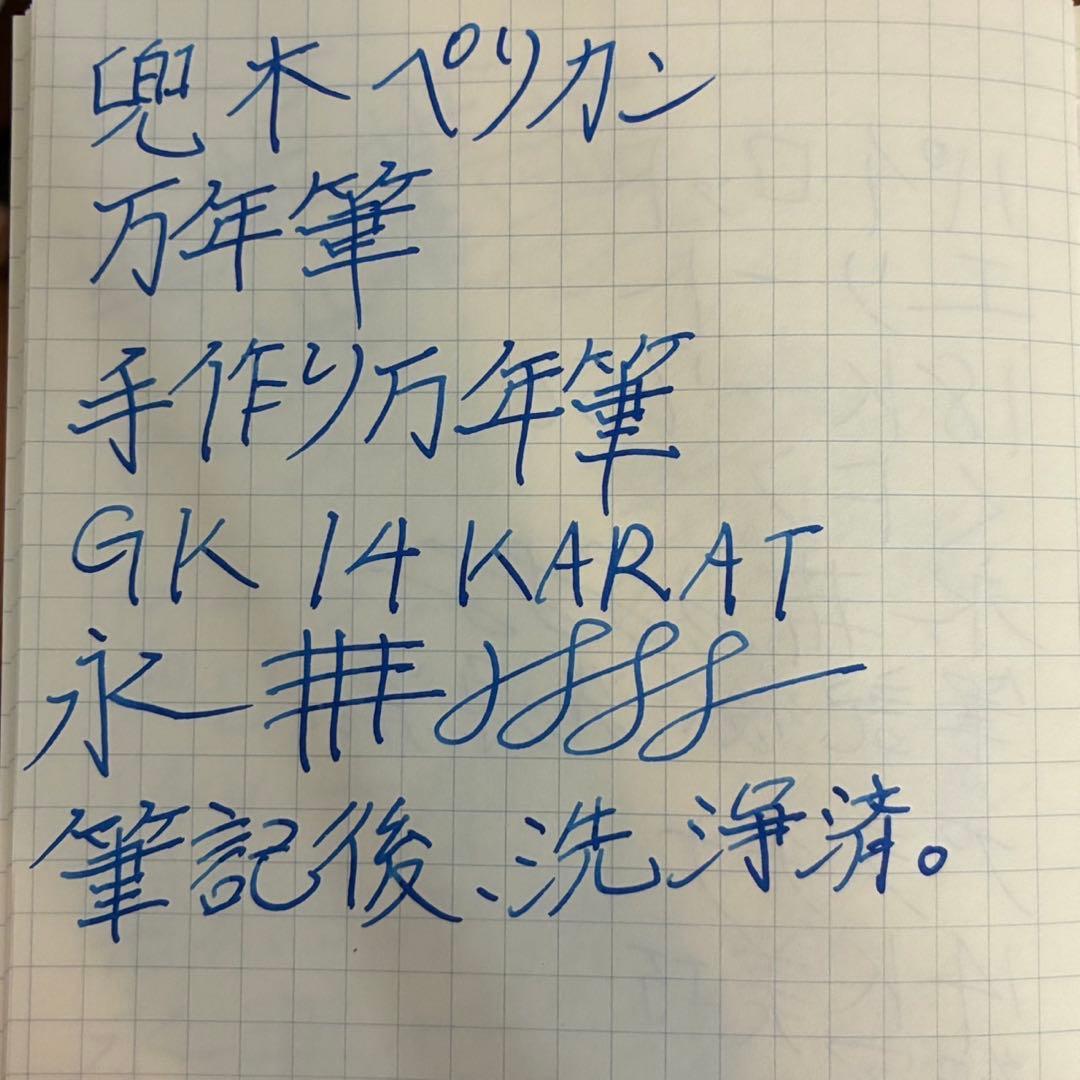 兜木ペリカン
万年筆
手作り万年筆
GK 14 KARAT
永
筆記後、洗浄済。